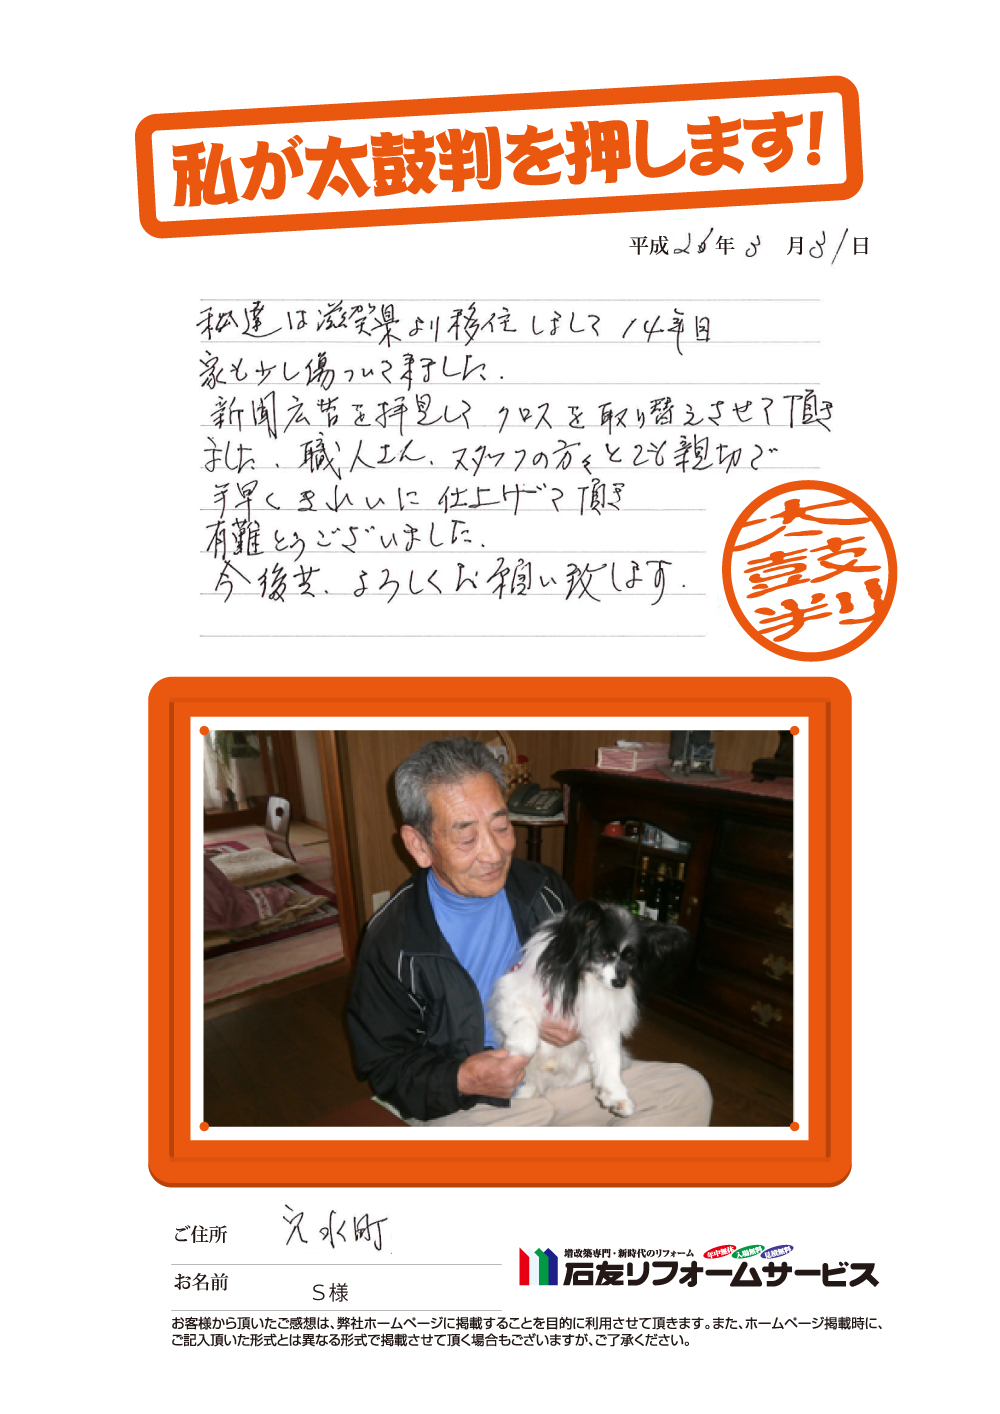 私が太鼓判を押します!
平成26年3月31日
私達は滋賀県より移住しまして14年目
家も少し傷ついて来ました.
新聞広告を拝見して クロスを取り替えさせて頂き
ました. 職人さん、スタッフの方々とても親切で
手早くきれいに仕上げて頂き
有難とうございました.
今後共、よろしくお願い致します.
太鼓判
ご住所 穴水町
お名前 S様
増改築専門・新時代のリフォーム 年中無休 入場無料 見積無料
石友リフォームサービス
お客様から頂いたご感想は、弊社ホームページに掲載することを目的に利用させて頂きます。また、ホームページ掲載時に、
ご記入頂いた形式とは異なる形式で掲載させて頂く場合もございますが、ご了承ください。